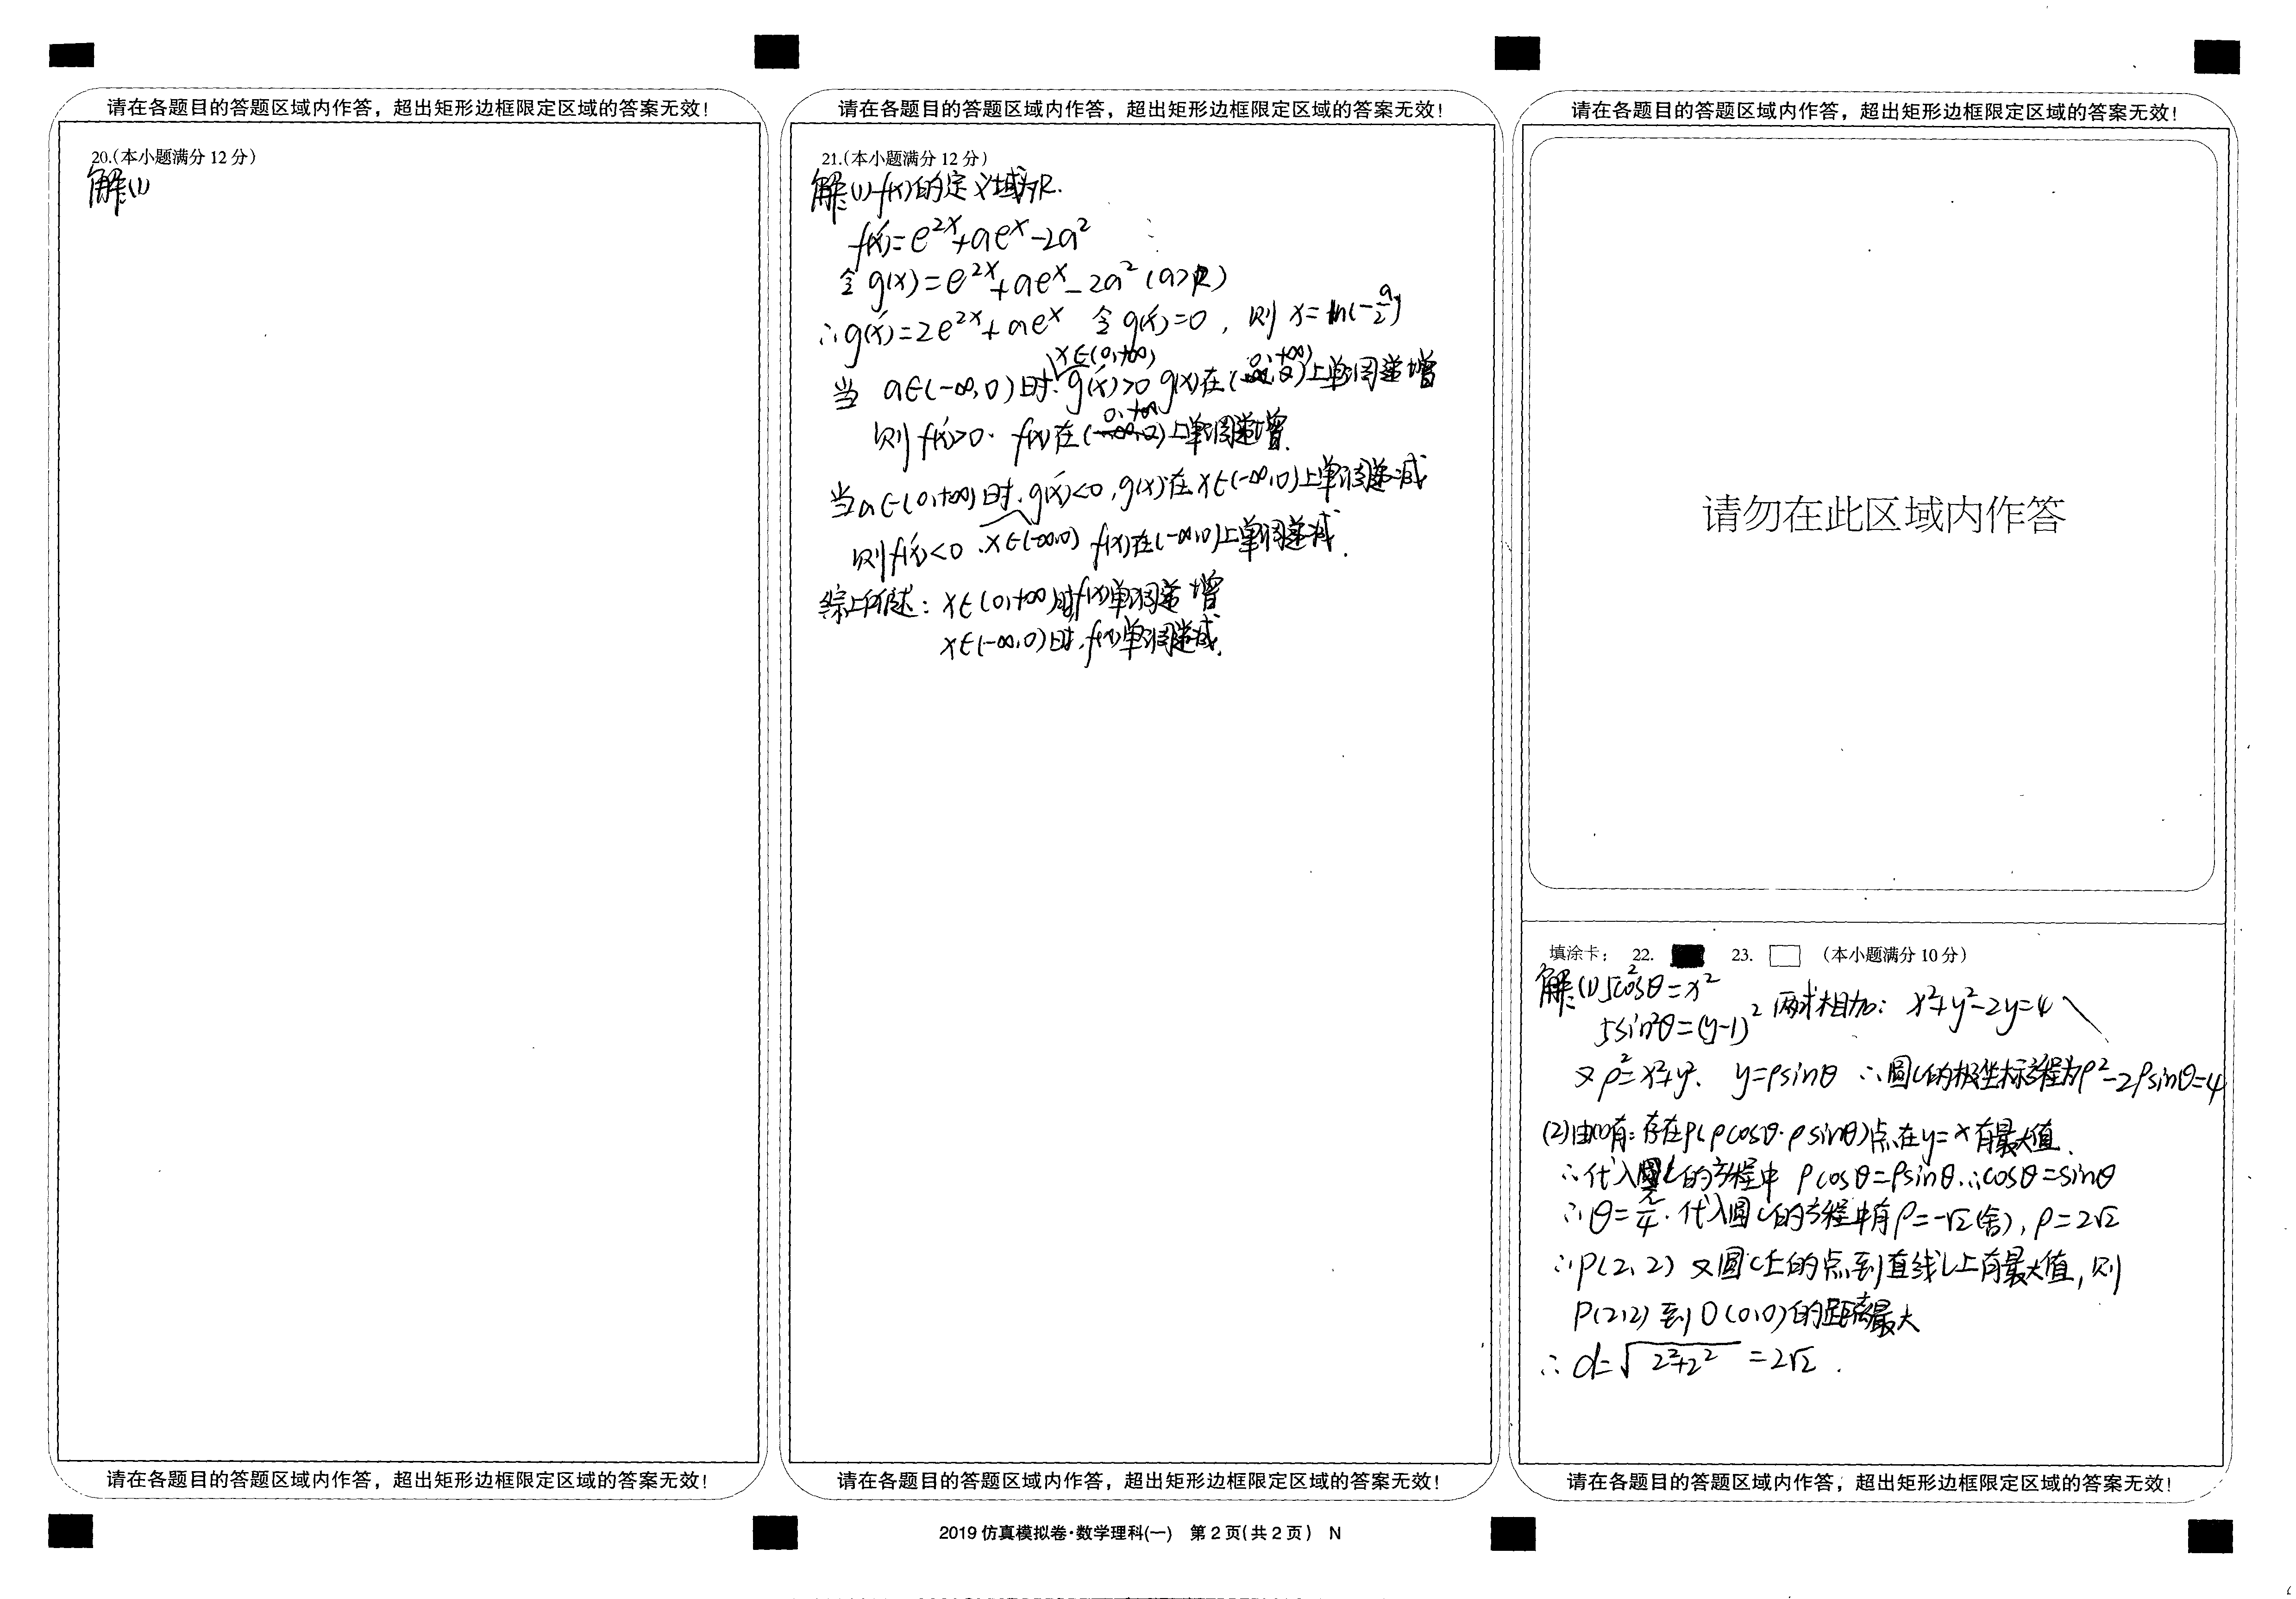 请在各题目的答题区域内作答，超出矩形边框限定区域的答案无效！
20.(本小题满分 12 分)
解:(1)
请在各题目的答题区域内作答，超出矩形边框限定区域的答案无效！
请在各题目的答题区域内作答，超出矩形边框限定区域的答案无效！
21.(本小题满分 12 分)
解:(1) f(x)的定义域为R.
f'(x)=e^{2x}+ae^x-2a²
令 g(x)=e^{2x}+ae^x-2a² (a>R)
∴g'(x)=2e^{2x}+ae^x 令 g'(x)=0，则 x=ln(-a/2)
当 a∈(-∞,0)时. x∈(0,+∞) g'(x)>0 g(x)在(0,+∞)上单调递增
则 f'(x)>0. f(x)在(0,+∞)上单调递增.
当a∈(0,+∞)时. g'(x)<0, g(x)在x∈(-∞,0)上单调递减
则f'(x)<0 . x∈(-∞,0) f(x)在(-∞,0)上单调递减.
综上所述：x∈(0,+∞)时f(x)单调递增
x∈(-∞,0)时, f(x)单调递减.
请在各题目的答题区域内作答，超出矩形边框限定区域的答案无效！
2019 仿真模拟卷·数学理科(一) 第 2 页(共 2 页) N
请在各题目的答题区域内作答，超出矩形边框限定区域的答案无效！
请勿在此区域内作答
填涂卡： 22. 23. （本小题满分 10 分）
解:(1)5cos²θ=x²
5sin²θ=(y-1)² 两式相加：x²+y²-2y=4
又ρ²=x²+y². y=ρsinθ ∴圆C的极坐标方程为ρ²-2ρsinθ=4
(2)由(1)有：存在P(ρcosθ·ρsinθ)点在y=x有最大值.
∴代入圆C的方程中 ρcosθ=ρsinθ.∴cosθ=sinθ
∴θ=π/4. 代入圆C的方程中有ρ=-√2(舍), ρ=2√2
∴P(2,2) 又圆C上的点到直线l上有最大值, 则
P(2,2)到O(0,0)的距离最大
∴d=√(2²+2²)=2√2.
请在各题目的答题区域内作答，超出矩形边框限定区域的答案无效！